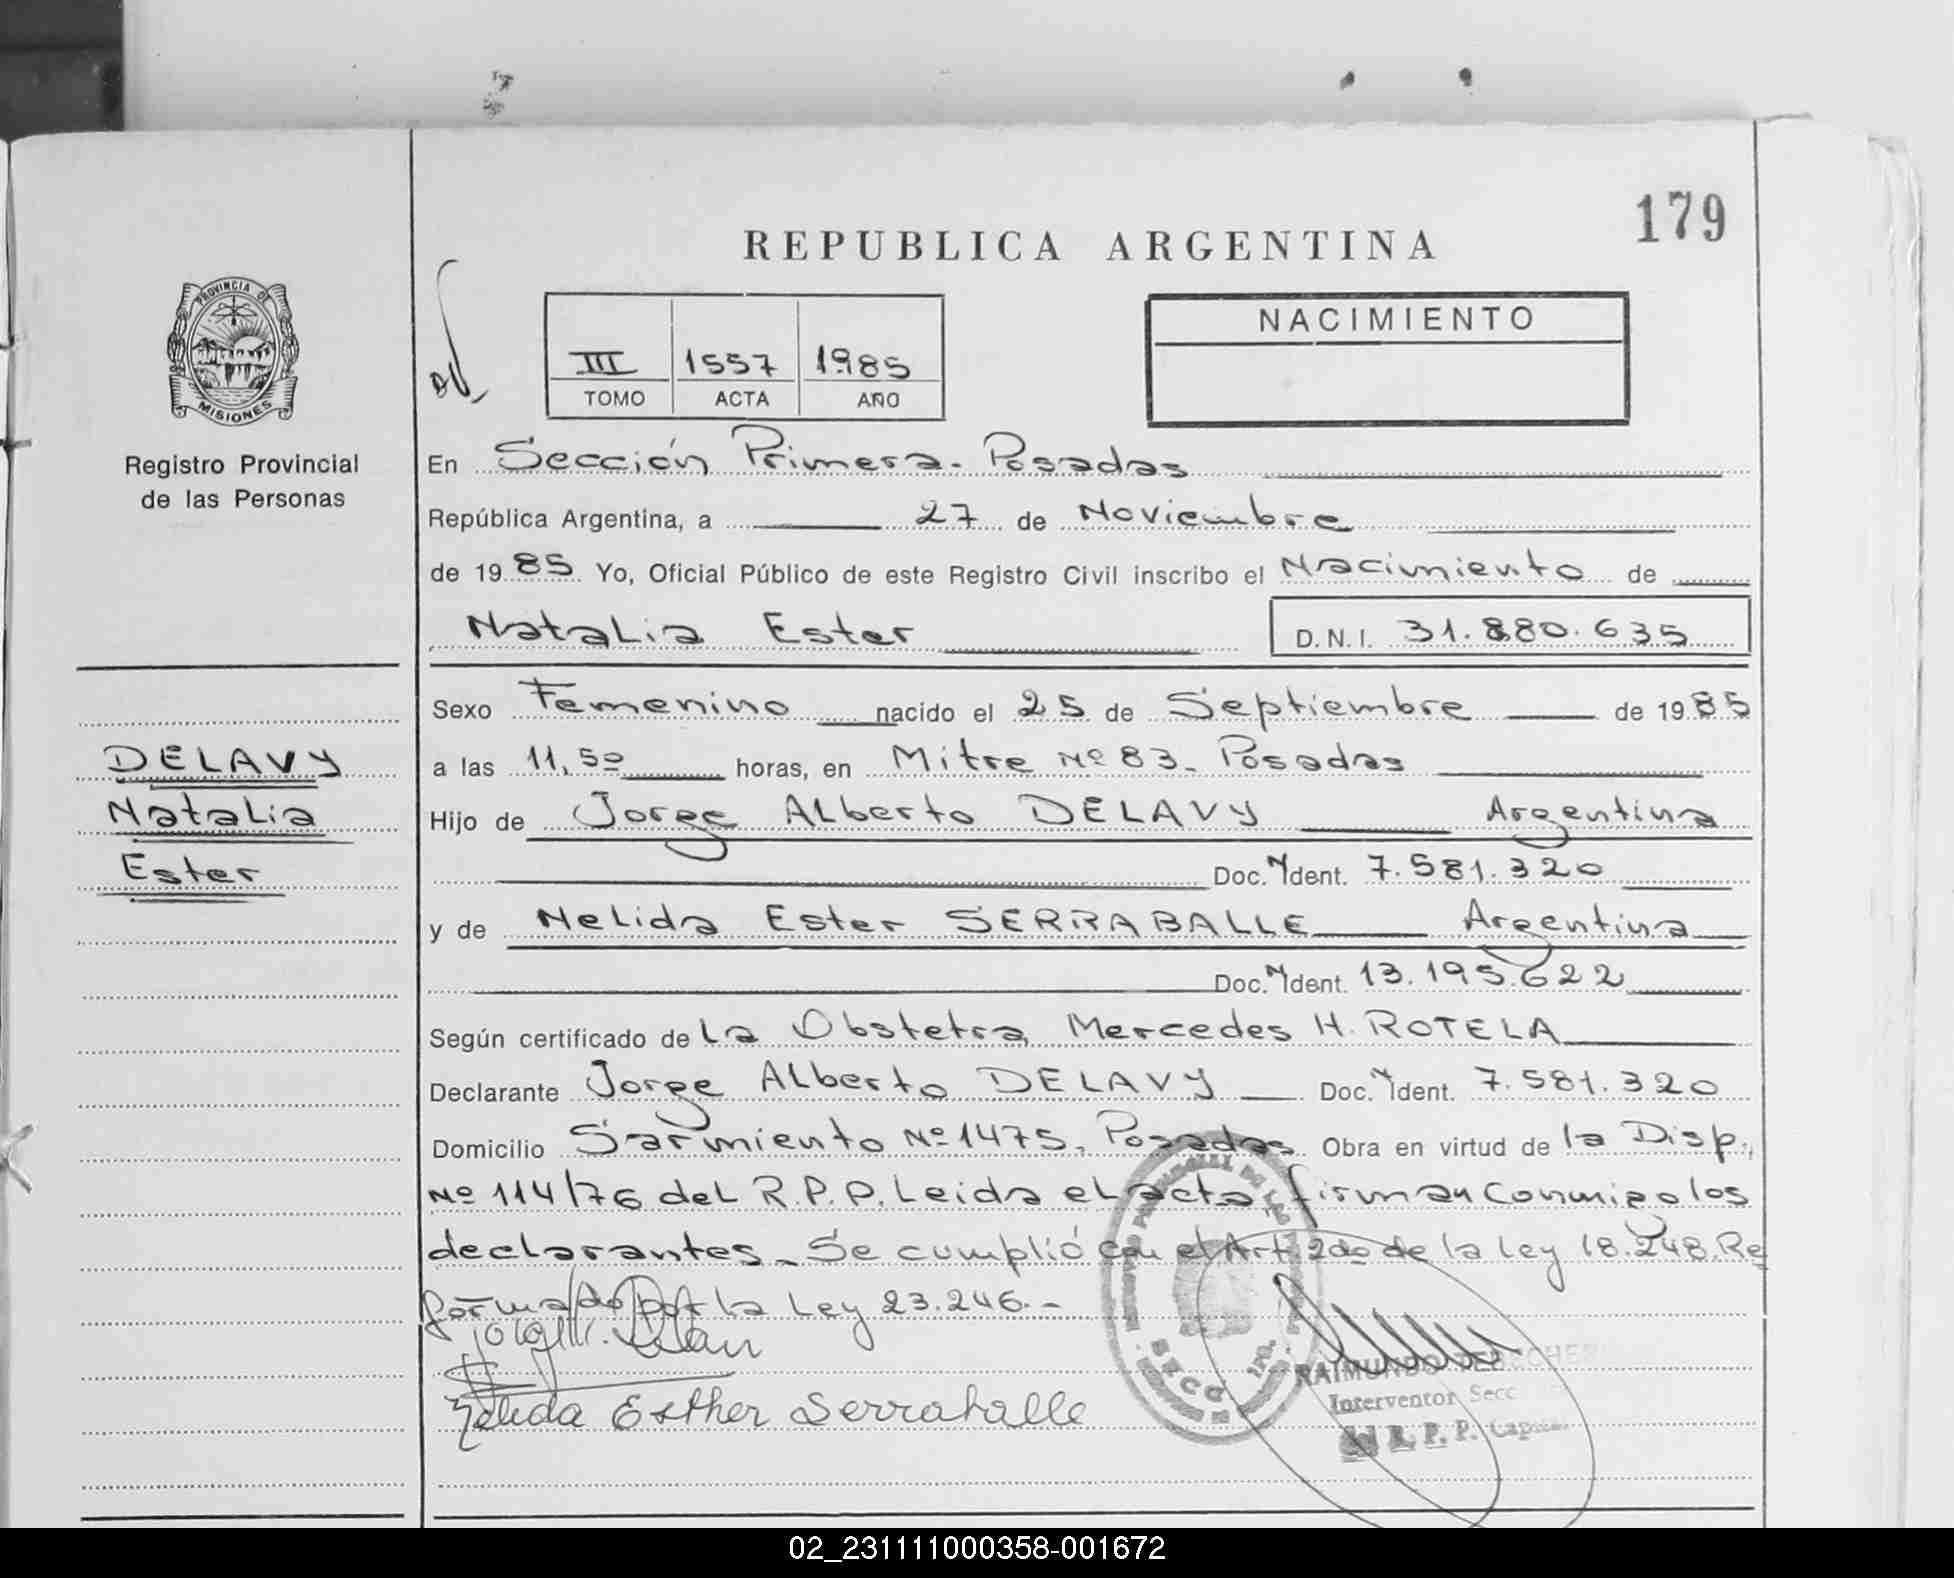 179
REPUBLICA ARGENTINA
PROVINCIA DE
MISIONES
Registro Provincial
de las Personas
III 1557 1985
TOMO ACTA AÑO
NACIMIENTO
En Sección Primera - Posadas
República Argentina, a 27 de Noviembre
de 1985 Yo, Oficial Público de este Registro Civil inscribo el Nacimiento de
Natalia Ester D.N.I. 31.880.635
Sexo Femenino nacido el 25 de Septiembre de 1985
DELAVY
Natalia
Ester
a las 11,50 horas, en Mitre Nº 83 - Posadas
Hijo de Jorge Alberto DELAVY Argentina
Doc. Ident. 7.581.320
y de Nelida Ester SERRABALLE Argentina
Doc. Ident. 13.195.622
Según certificado de la Obstetra Mercedes H. ROTELA
Declarante Jorge Alberto DELAVY Doc. Ident. 7.581.320
Domicilio Sarmiento Nº 1475, Posadas Obra en virtud de la Disp.
Nº 114/76 del R.P.P. Leida el acta firman conmigo los
declarantes - Se cumplió con el Art. 2do de la Ley 18.248. Re
formado por la Ley 23.246. -
Nelida Esther Serraballe
RAIMUNDO
Interventor Secc
R. P. P. Capital
02_231111000358-001672